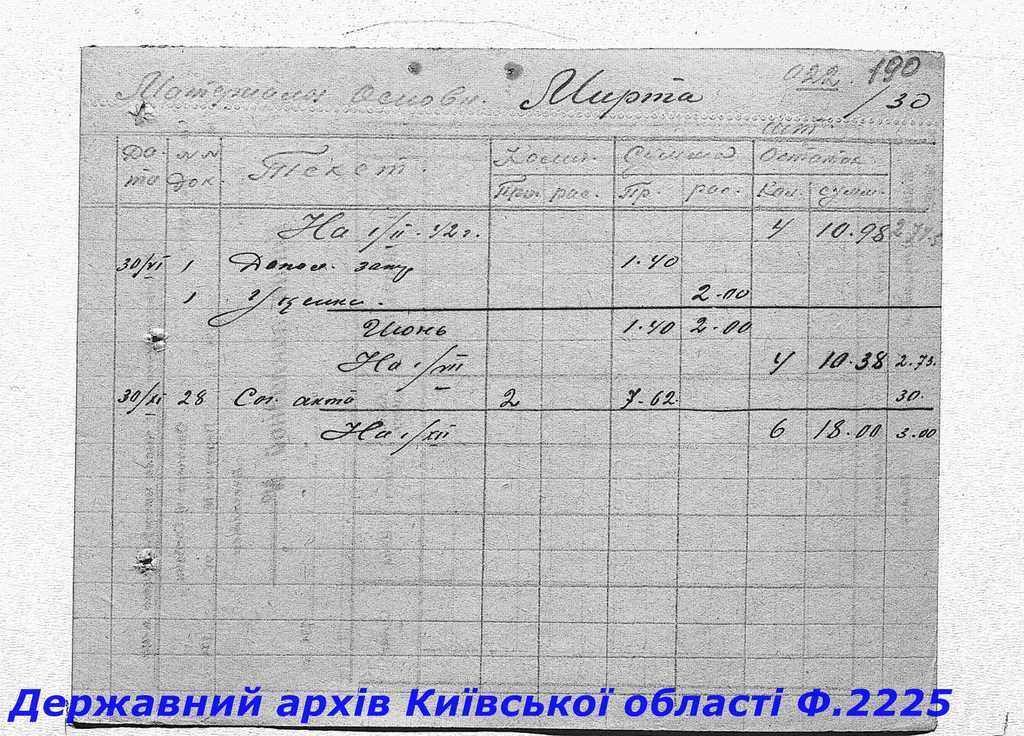 022. 190
Материалы основн. Мирта /30
шт
Да- №№ Текст. Колич. Сумма Остаток
та док. При. рас. Пр. рас. Кол. сумм.
На 1/II-42г. 4 10.98
30/VI 1 Допол. зап. 1.40
1 Уценки. 2.00
Июнь 1.40 2.00
На 1/VII 4 10.38 2.73.
30/XI 28 Сог. акта 2 7-62 30.
На 1/XII 6 18.00 3.00
Державний архів Київської області Ф.2225